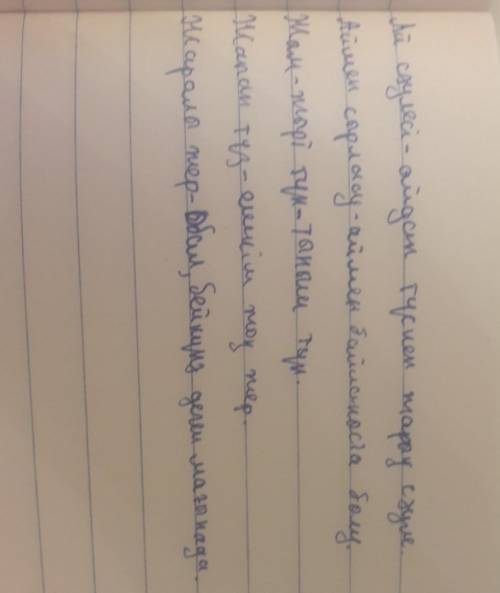 Ай сәулесі - айдан түскен жарық сәуле.
Аймен сырласу - аймен байланыста болу.
Жым-жырт түн - тыныш түн.
Жапан түз - ешкім жоқ жер.
Жаралы жер - Абыл, бейкүнә деген мағынада.